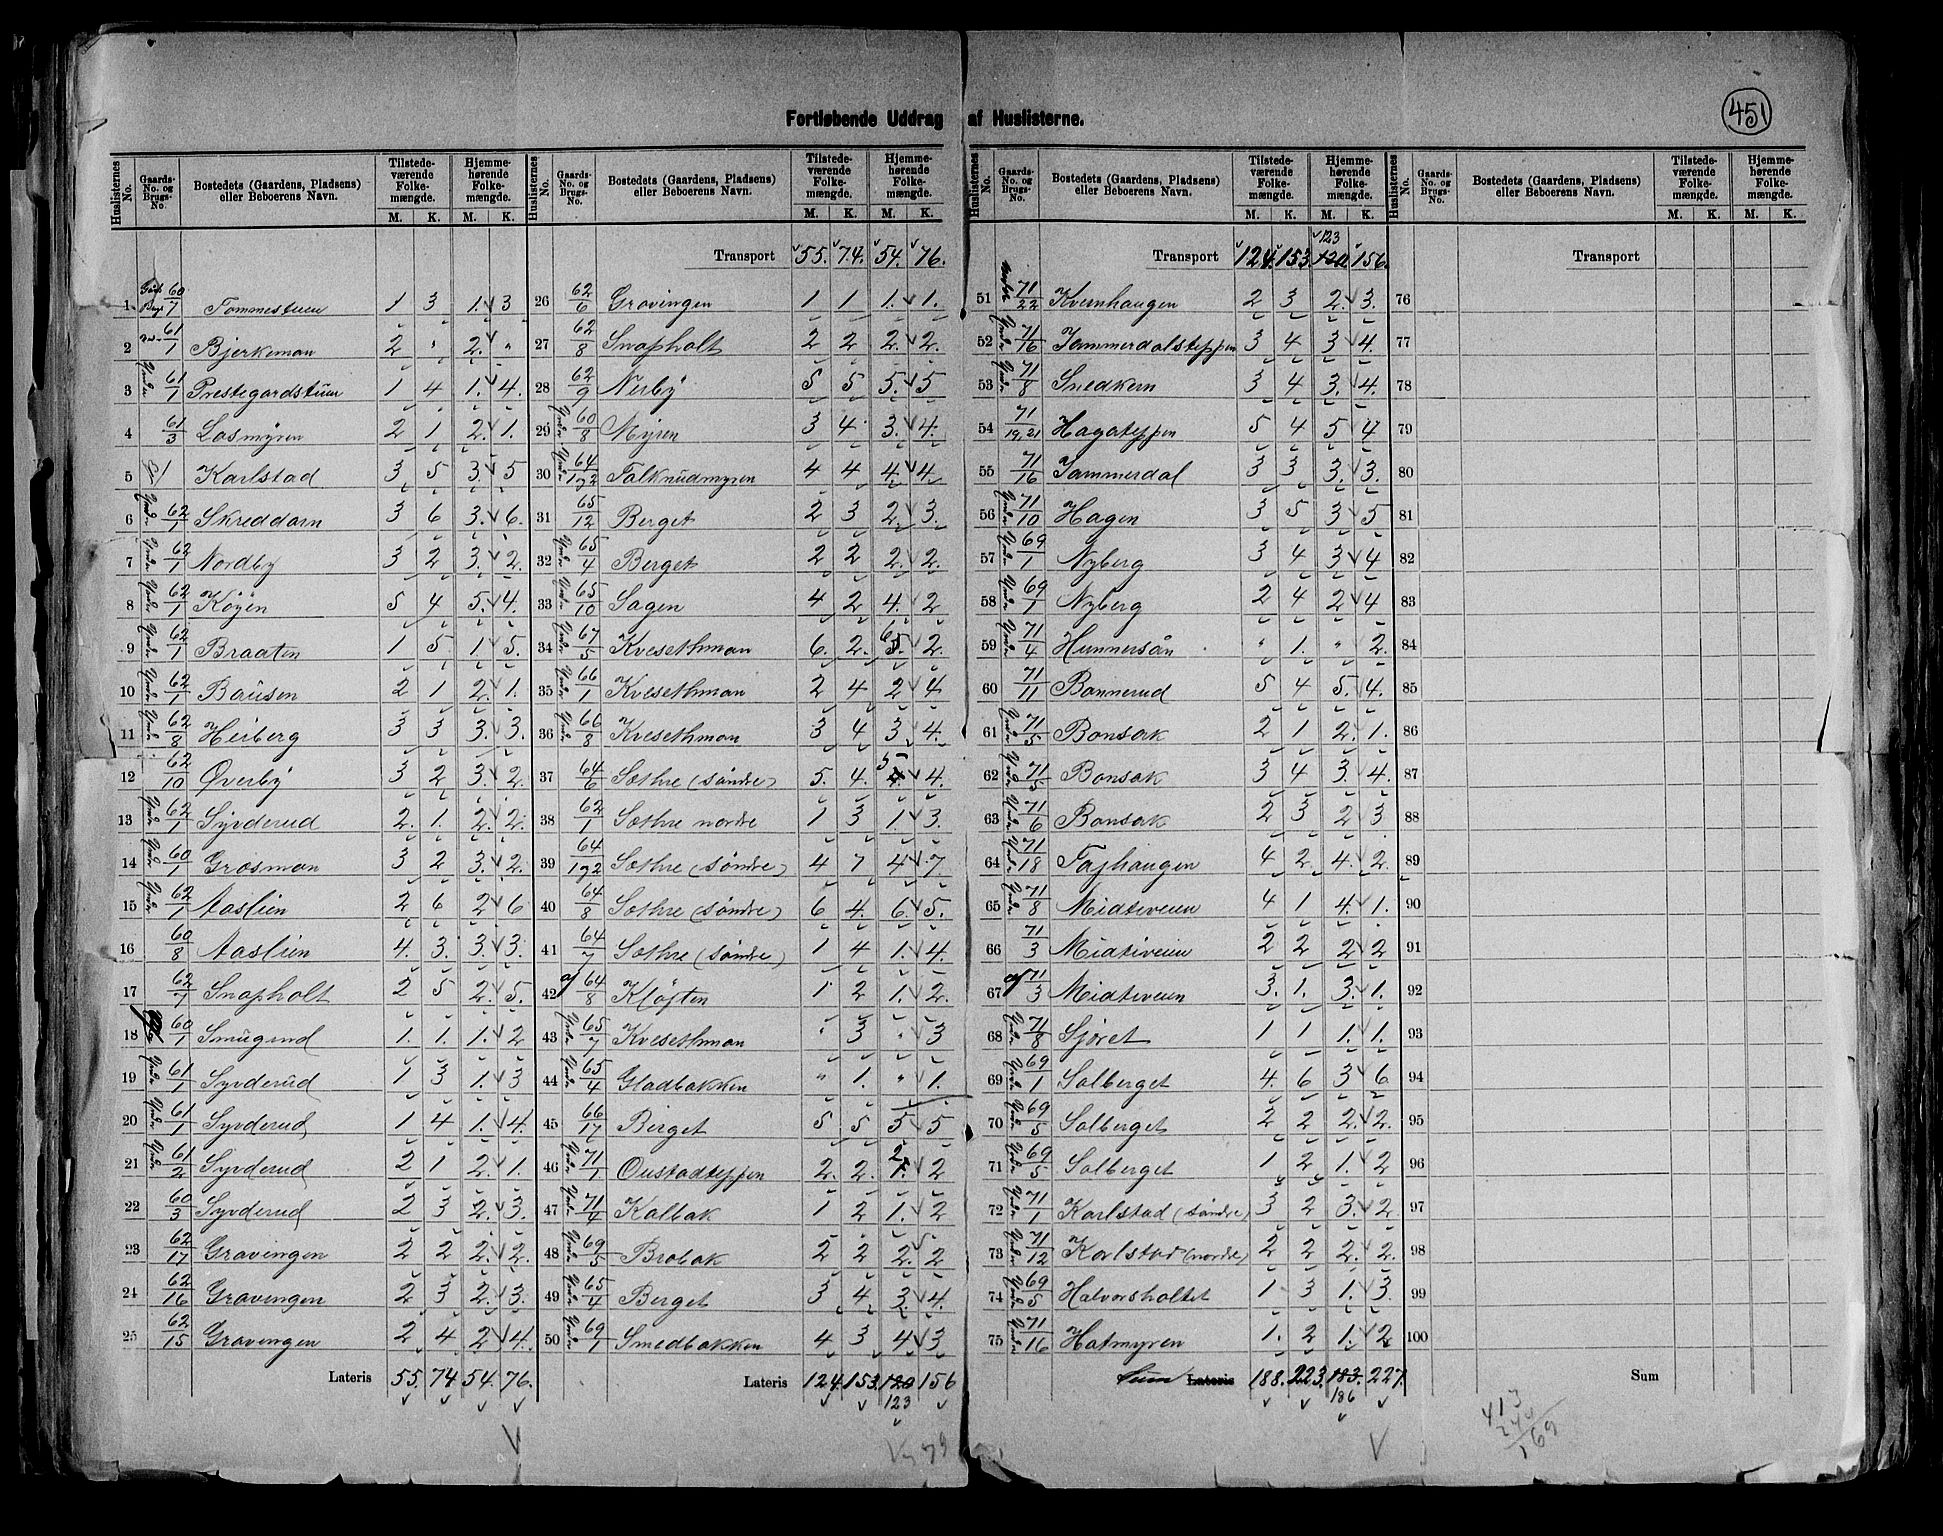 451
Fortløbende Uddrag af Huslisterne.
Huslisternes No. Gaards-No. og Brugs-No. Bostedets (Gaardens, Pladsens) eller Beboerens Navn. Tilstedeværende Folkemængde. M. K. Hjemmehørende Folkemængde. M. K.
Huslisternes No. Gaards-No. og Brugs-No. Bostedets (Gaardens, Pladsens) eller Beboerens Navn. Tilstedeværende Folkemængde. M. K. Hjemmehørende Folkemængde. M. K.
Huslisternes No. Gaards-No. og Brugs-No. Bostedets (Gaardens, Pladsens) eller Beboerens Navn. Tilstedeværende Folkemængde. M. K. Hjemmehørende Folkemængde. M. K.
Huslisternes No. Gaards-No. og Brugs-No. Bostedets (Gaardens, Pladsens) eller Beboerens Navn. Tilstedeværende Folkemængde. M. K. Hjemmehørende Folkemængde. M. K.
1 60/7 Tommestuen 1 3 1. 3
2 61/1 Bjerkeman 2 " 2. "
3 Under 61/1 Prestegardstuen 1 4 1. 4.
4 61/3 Losmyren 2 1 2. 1.
5 Karlstad 3 5 3. 5
6 Under 62/1 Skreddarn 3 6 3. 6.
7 Under 62/1 Nordby 3 2 3. 2.
8 Under 62/1 Köyen 5 4 5. 4.
9 Under 62/1 Braaten 1 5. 1 5.
10 Under 62/1 Bausen 2 1 2. 1.
11 Under 62/8 Heiberg 3 3 3. 3.
12 62/10 Øverby 3 2 3. 2.
13 Under 62/1 Syverud 2. 1. 2. 2.
14 Under 60/1 Grosman 3 2 3. 2.
15 Under 62/1 Aaslien 2 6 2 6
16 60/8 Aaslien 4. 3. 3. 3.
17 62/7 Snapholt 2 5 2. 5.
18 60/1 Smugind 1. 1. 1. 2
19 Under 61/1 Syverud 1 3 1. 3
20 Under 61/1 Syverud 1 4 1. 4.
21 Under 61/2 Syverud 2 1 2. 1.
22 60/3 Syverud 2 3 2. 3.
23 62/17 Gravingen 2 2 2. 2.
24 62/16 Gravingen 2 3 2. 3.
25 62/15 Gravingen 2 4 2 4.
Lateris 55. 74 54. 76.
Transport 55. 74. 54. 76.
26 62/6 Gravingen 1 1 1. 1.
27 62/8 Snapholt 2 2 2. 2.
28 62/9 Nerby 5 5 5. 5
29 Under 60/8 Myren 3 4 3. 4.
30 Under 64/1 92 Falknudmyren 4 4 4. 4.
31 65/12 Berget 2 3 2. 3.
32 Under 65/4 Berget 2 2 2. 2.
33 Under 65/10 Sagen 4 2 4. 2
34 Under 67/5 Kvesethman 6. 2. 6 5. 2.
35 Under 66/1 Kvesethman 2 4 2 4
36 Under 66/8 Kvesethman 3 4 3. 4.
37 64/6 Sæthre (søndre) 5. 4. 5 4. 4.
38 62/1 Sæthre nordre 1 3 1. 3.
39 64/192 Sæthre (søndre) 4 7 4 7.
40 64/8 Sæthre (søndre) 6 4. 6. 5.
41 64/7 Sæthre (søndre) 1 4 1. 4.
42 af 64/8 Kløften 1 2 1. 2.
43 Under 65/7 Kvesethman " 3 " 3
44 Under 65/4 Gladbakken " 1. " 1.
45 66/17 Berget 5 5 5 5
46 Under 71/1 Oustadteppen 2. 2. 2 1. 2
47 Under 71/4 Kalbak 1 2 1. 2
48 Under 69/5 Brobak 2 2 2. 2
49 Under 65/4 Berget 3 4 3. 4.
50 Under 69/1 Smedbakken 4 3 4 3
Lateris 124. 153. 120 156
123
Transport 124. 153. 123 120 156.
51 71/22 Kvernhaugen 2 3 2. 3.
52 Under 71/16 Jammerdalsteppen 3 4 3 4.
53 Under 71/8 Snedkern 3 4 3. 4.
54 71/19,21 Hagateppen 5 4 5 4
55 71/16 Jammerdal 3 3 3. 3.
56 Under 71/10 Hagen 3 5 3 5
57 Under 69/1 Nyberg 3 4 3 4
58 Under 69/1 Nyberg 2 4 2 4
59 Under 71/4 Hunnersån " 1. " 2.
60 71/11 Bannerud 5 4 5. 4.
61 Under 71/5 Bonsak 2 1 2. 1.
62 Under 71/5 Bonsak 3 4 3. 4.
63 Under 71/6 Bonsak 2 3 2 3
64 Under 71/18 Fajhaugen 4 2 4. 2.
65 Under 71/8 Midtiveien 4 1 4. 1.
66 71/3 Midtiveien 2 2 2 2
67 af 71/3 Midtiveien 3. 1. 3. 1.
68 Under 71/8 Sjøret 1 1 1. 1.
69 Under 69/1 Solberget 4. 6 3 6
70 Under 69/5 Solberget 2 2 2. 2.
71 Under 69/5 Solberget 1 2 1. 2
72 Under 71/1 Karlstad (søndre) 3 2 3. 2.
73 Under 71/12 Karlstad (nordre) 2 2 2. 2.
74 Under 69/5 Halvorsholtet 1 3 1. 3.
75 Under 71/16 Hatmyren 1. 2 1. 2
Sum Lateris 188. 223. 183. 227.
186
Transport
76
77
78
79
80
81
82
83
84
85
86
87
88
89
90
91
92
93
94
95
96
97
98
99
100
Sum
413
169